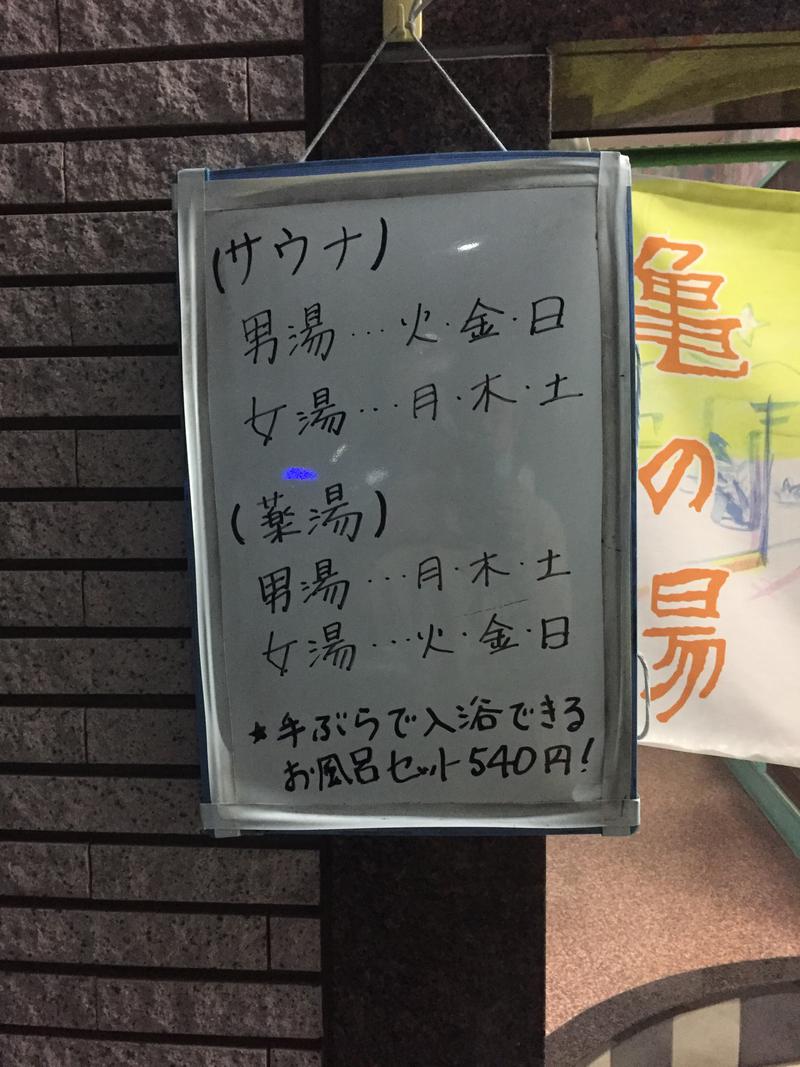 (サウナ)
男湯…火・金・日
女湯…月・木・土
(薬湯)
男湯…月・木・土
女湯…火・金・日
★手ぶらで入浴できる
お風呂セット540円!
亀の湯